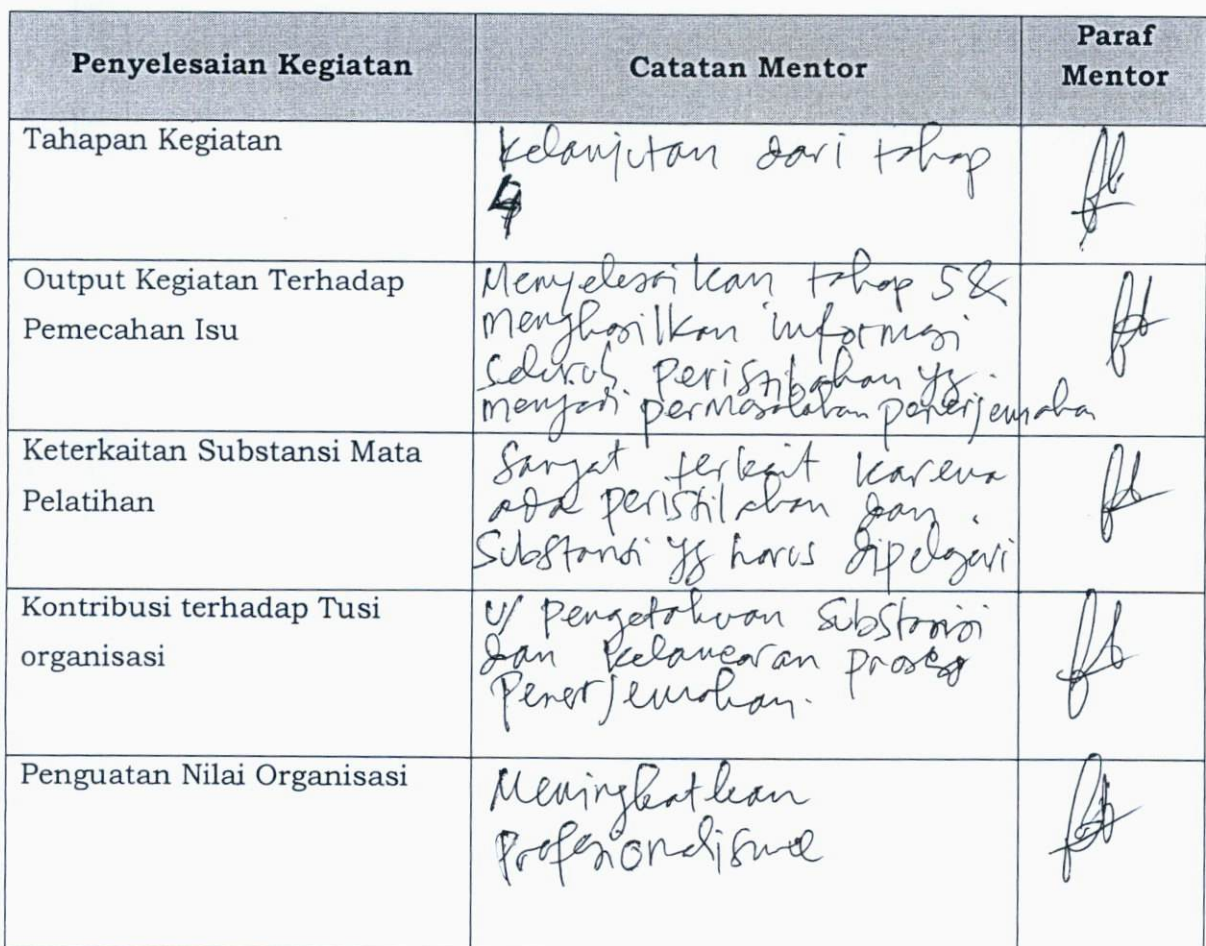 Penyelesaian Kegiatan
Catatan Mentor
Paraf
Mentor
Tahapan Kegiatan
Kelanjutan dari tahap
4
Output Kegiatan Terhadap
Pemecahan Isu
Menyelesaikan tahap 5 &
menghasilkan informasi
seluruh peristilahan yg
menjadi permasalahan penerjemaha
Keterkaitan Substansi Mata
Pelatihan
Sangat terkait karena
ada peristilahan dan
Substansi yg harus dipelajari
Kontribusi terhadap Tusi
organisasi
U/ pengetahuan Substansi
dan kelancaran proses
Penerjemahan.
Penguatan Nilai Organisasi
Meningkatkan
Profesionalisme